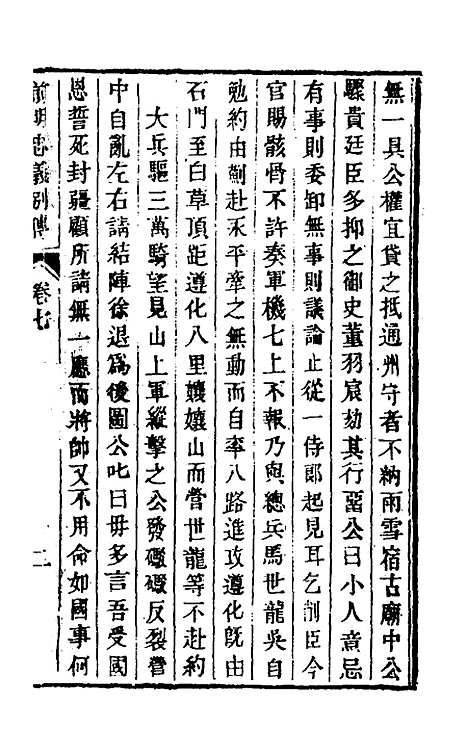 無一具公權宜貸之抵通州守者不納雨雪宿古廟中公
驟貴廷臣多抑之御史董羽宸劾其行罶公曰小人意忌
有事則委卸無事則議論止從一侍郎起見耳乞削臣今
官賜骸骨不許奏軍機七上不報乃與總兵馬世龍吳自
勉約由薊赴永平牽之無動而自率八路進攻遵化旣由
石門至白草頂距遵化八里孃孃山而營世龍等不赴約
大兵驅三萬騎望見山上軍縱擊之公發礟礟反裂營
中自亂左右請結陣徐退爲後圖公叱曰毋多言吾受國
恩誓死封疆顧所請無一應而將帥又不用命如國事何
前明忠義別傳
卷七
二